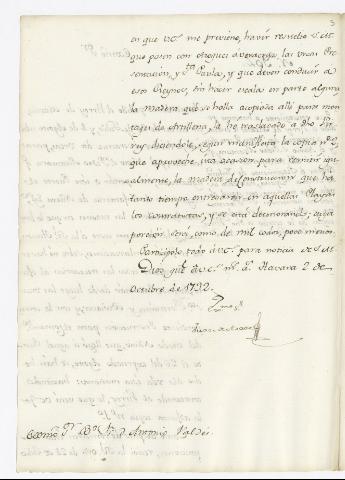 en que V.E. me previene, haver resuelto S.M.
que pasen con azogues a Veracruz, las Urcas Pre-
sentacion, y Sta. Paula, y que deven conducir a
esos Reynos, sin hacer escala en parte alguna
la madera que se halla acopiada alli para mon-
tajes de Artilleria, la he trasladado a dho Vi-
rrey diciendole, segun manifiesta la copia nº 2,
que aproveche esta ocasion para remitir igu-
almente, la madera de construccion que ha
tanto tiempo entregaron en aquellas Playas
los contratistas, y se está deteriorando, cuya
porcion será, como de mil codos, poco menos.
Participolo todo a V.E. para noticia de S.M.
Dios gue. a V.E. ms. as. Havana 2 de
Octubre de 1792.
Exmo. Sr.
Exmo. Sr. Bo. Fr. Dn. Antonio Valdés.